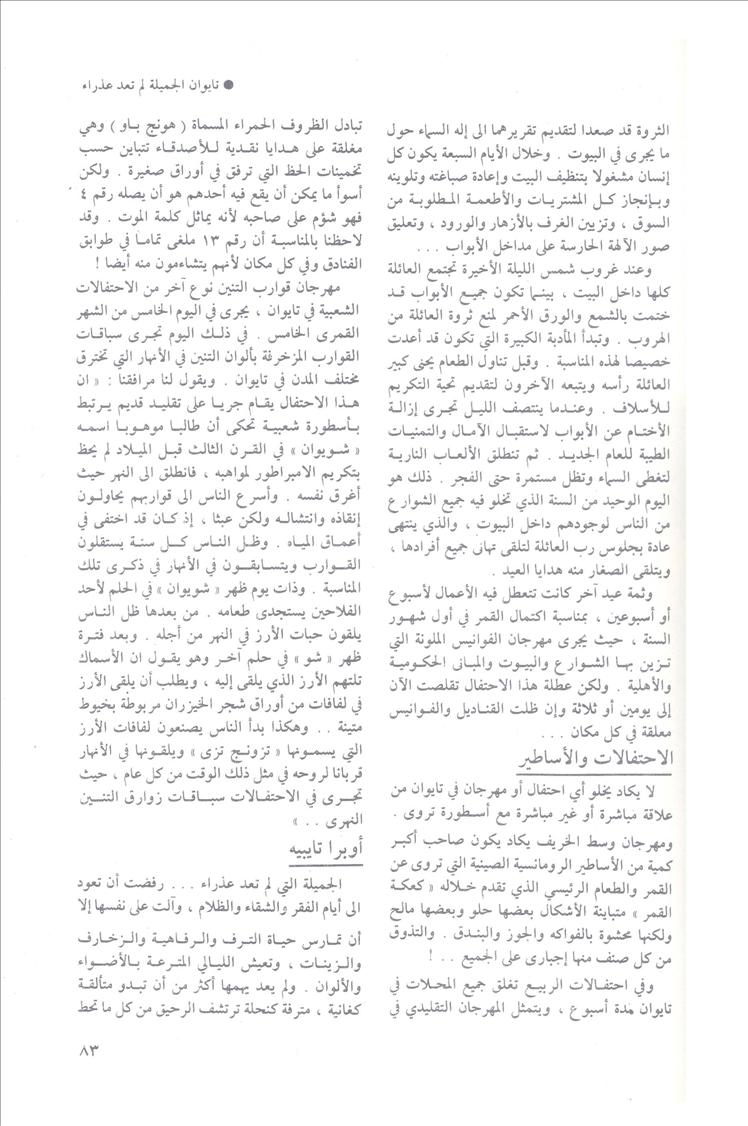 ● تايوان الجميلة لم تعد عذراء
الثروة قد صعدا لتقديم تقريرهما الى إله السماء حول
ما يجرى في البيوت . وخلال الأيام السبعة يكون كل
إنسان مشغولا بتنظيف البيت وإعادة صباغته وتلوينه
وبإنجاز كل المشتريات والأطعمة المطلوبة من
السوق ، وتزيين الغرف بالأزهار والورود ، وتعليق
صور الآلهة الحارسة على مداخل الأبواب ...
وعند غروب شمس الليلة الأخيرة تجتمع العائلة
كلها داخل البيت ، بينما تكون جميع الأبواب قد
ختمت بالشمع والورق الأحمر لمنع ثروة العائلة من
الهروب . وتبدأ المأدبة الكبيرة التي تكون قد أعدت
خصيصا لهذه المناسبة . وقبل تناول الطعام يحنى كبير
العائلة رأسه ويتبعه الآخرون لتقديم تحية التكريم
للأسلاف . وعندما ينتصف الليل تجرى إزالة
الأختام عن الأبواب لاستقبال الآمال والتمنيات
الطيبة للعام الجديد . ثم تنطلق الألعاب النارية
لتغطى السماء وتظل مستمرة حتى الفجر . ذلك هو
اليوم الوحيد من السنة الذي تخلو فيه جميع الشوارع
من الناس لوجودهم داخل البيوت ، والذي ينتهى
عادة بجلوس رب العائلة لتلقى تهانى جميع أفرادها ،
ويتلقى الصغار منه هدايا العيد .
وثمة عيد آخر كانت تتعطل فيه الأعمال لأسبوع
أو أسبوعين ، بمناسبة اكتمال القمر في أول شهور
السنة ، حيث يجرى مهرجان الفوانيس الملونة التي
تزين بها الشوارع والبيوت والمبانى الحكومية
والأهلية . ولكن عطلة هذا الاحتفال تقلصت الآن
إلى يومين أو ثلاثة وإن ظلت القناديل والفوانيس
معلقة في كل مكان ...
الاحتفالات والأساطير
لا يكاد يخلو أي احتفال أو مهرجان في تايوان من
علاقة مباشرة أو غير مباشرة مع أسطورة تروى .
ومهرجان وسط الخريف يكاد يكون صاحب أكبر
كمية من الأساطير الرومانسية الصينية التي تروى عن
القمر والطعام الرئيسي الذي تقدم خلاله « كعكة
القمر » متباينة الأشكال بعضها حلو وبعضها مالح
ولكنها محشوة بالفواكه والجوز والبندق . والتذوق
من كل صنف منها إجبارى على الجميع .. !
وفي احتفالات الربيع تغلق جميع المحلات في
تايوان لمدة أسبوع ، ويتمثل المهرجان التقليدي في
تبادل الظروف الحمراء المسماة ( هونج باو ) وهي
مغلقة على هدايا نقدية للأصدقاء تتباين حسب
تخمينات الحظ التي ترفق في أوراق صغيرة . ولكن
أسوأ ما يمكن أن يقع فيه أحدهم هو أن يصله رقم ٤
فهو شؤم على صاحبه لأنه يماثل كلمة الموت . وقد
لاحظنا بالمناسبة أن رقم ١٣ ملغى تماما في طوابق
الفنادق وفي كل مكان لأنهم يتشاءمون منه أيضا !
مهرجان قوارب التنين نوع آخر من الاحتفالات
الشعبية في تايوان ، يجرى في اليوم الخامس من الشهر
القمرى الخامس . في ذلك اليوم تجرى سباقات
القوارب المزخرفة بألوان التنين في الأنهار التي تخترق
مختلف المدن في تايوان . ويقول لنا مرافقنا : « ان
هذا الاحتفال يقام جريا على تقليد قديم يرتبط
بأسطورة شعبية تحكى أن طالبا موهوبا اسمه
« شويوان » في القرن الثالث قبل الميلاد لم يحظ
بتكريم الامبراطور لمواهبه ، فانطلق الى النهر حيث
أغرق نفسه . وأسرع الناس الى قواربهم يحاولون
إنقاذه وانتشاله ولكن عبثا ، إذ كان قد اختفى في
أعماق المياه . وظل الناس كل سنة يستقلون
القوارب ويتسابقون في الأنهار في ذكرى تلك
المناسبة . وذات يوم ظهر « شويوان » في الحلم لأحد
الفلاحين يستجدى طعامه . من بعدها ظل الناس
يلقون حبات الأرز في النهر من أجله . وبعد فترة
ظهر « شو » في حلم آخر وهو يقول ان الأسماك
تلتهم الأرز الذي يلقى إليه ، ويطلب أن يلقى الأرز
في لفافات من أوراق شجر الخيزران مربوطة بخيوط
متينة .. وهكذا بدأ الناس يصنعون لفافات الأرز
التي يسمونها « تزونج تزى » ويلقونها في الأنهار
قربانا لروحه في مثل ذلك الوقت من كل عام ، حيث
تجرى في الاحتفالات سباقات زوارق التنين
النهرى .. »
أوبرا تايبيه
الجميلة التي لم تعد عذراء ... رفضت أن تعود
الى أيام الفقر والشقاء والظلام ، وآلت على نفسها إلا
أن تمارس حياة الترف والرفاهية والزخارف
والزينات ، وتعيش الليالي المترعة بالأضواء
والألوان . ولم يعد يهمها أكثر من أن تبدو متألقة
كغانية ، مترفة كنحلة ترتشف الرحيق من كل ما تحط
٨٣